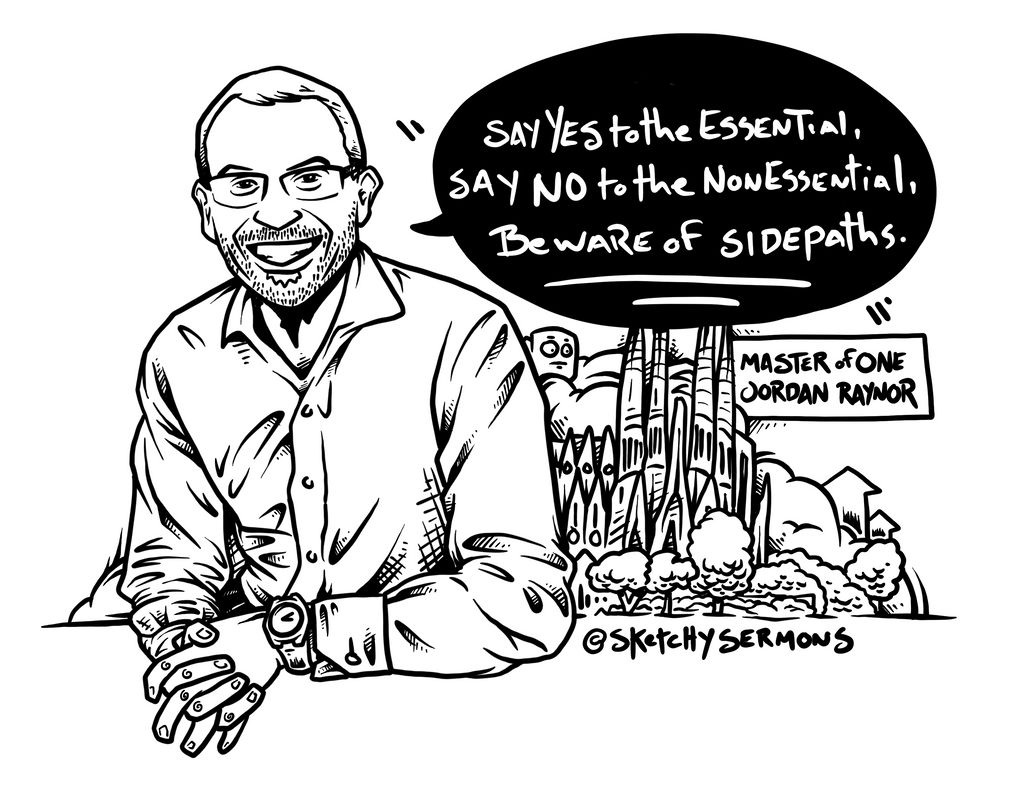 SAY YES to the ESSENTIAL,
SAY NO to the NONESSENTIAL,
BEWARE of SIDEPATHS.
MASTER of ONE
JORDAN RAYNOR
@SKETCHYSERMONS